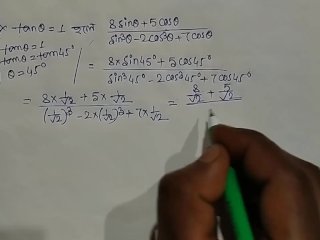 × tanθ = 1 হলে (8 sinθ + 5 cosθ)/(sin³θ - 2cos³θ + 7cosθ)
tanθ = 1
tanθ = tan45°
θ = 45°
= (8 × sin45° + 5cos45°)/(sin³45° - 2cos³45° + 7cos45°)
= (8 × 1/√2 + 5 × 1/√2)/((1/√2)³ - 2 × (1/√2)³ + 7 × 1/√2) = 8/√2 + 5/√2